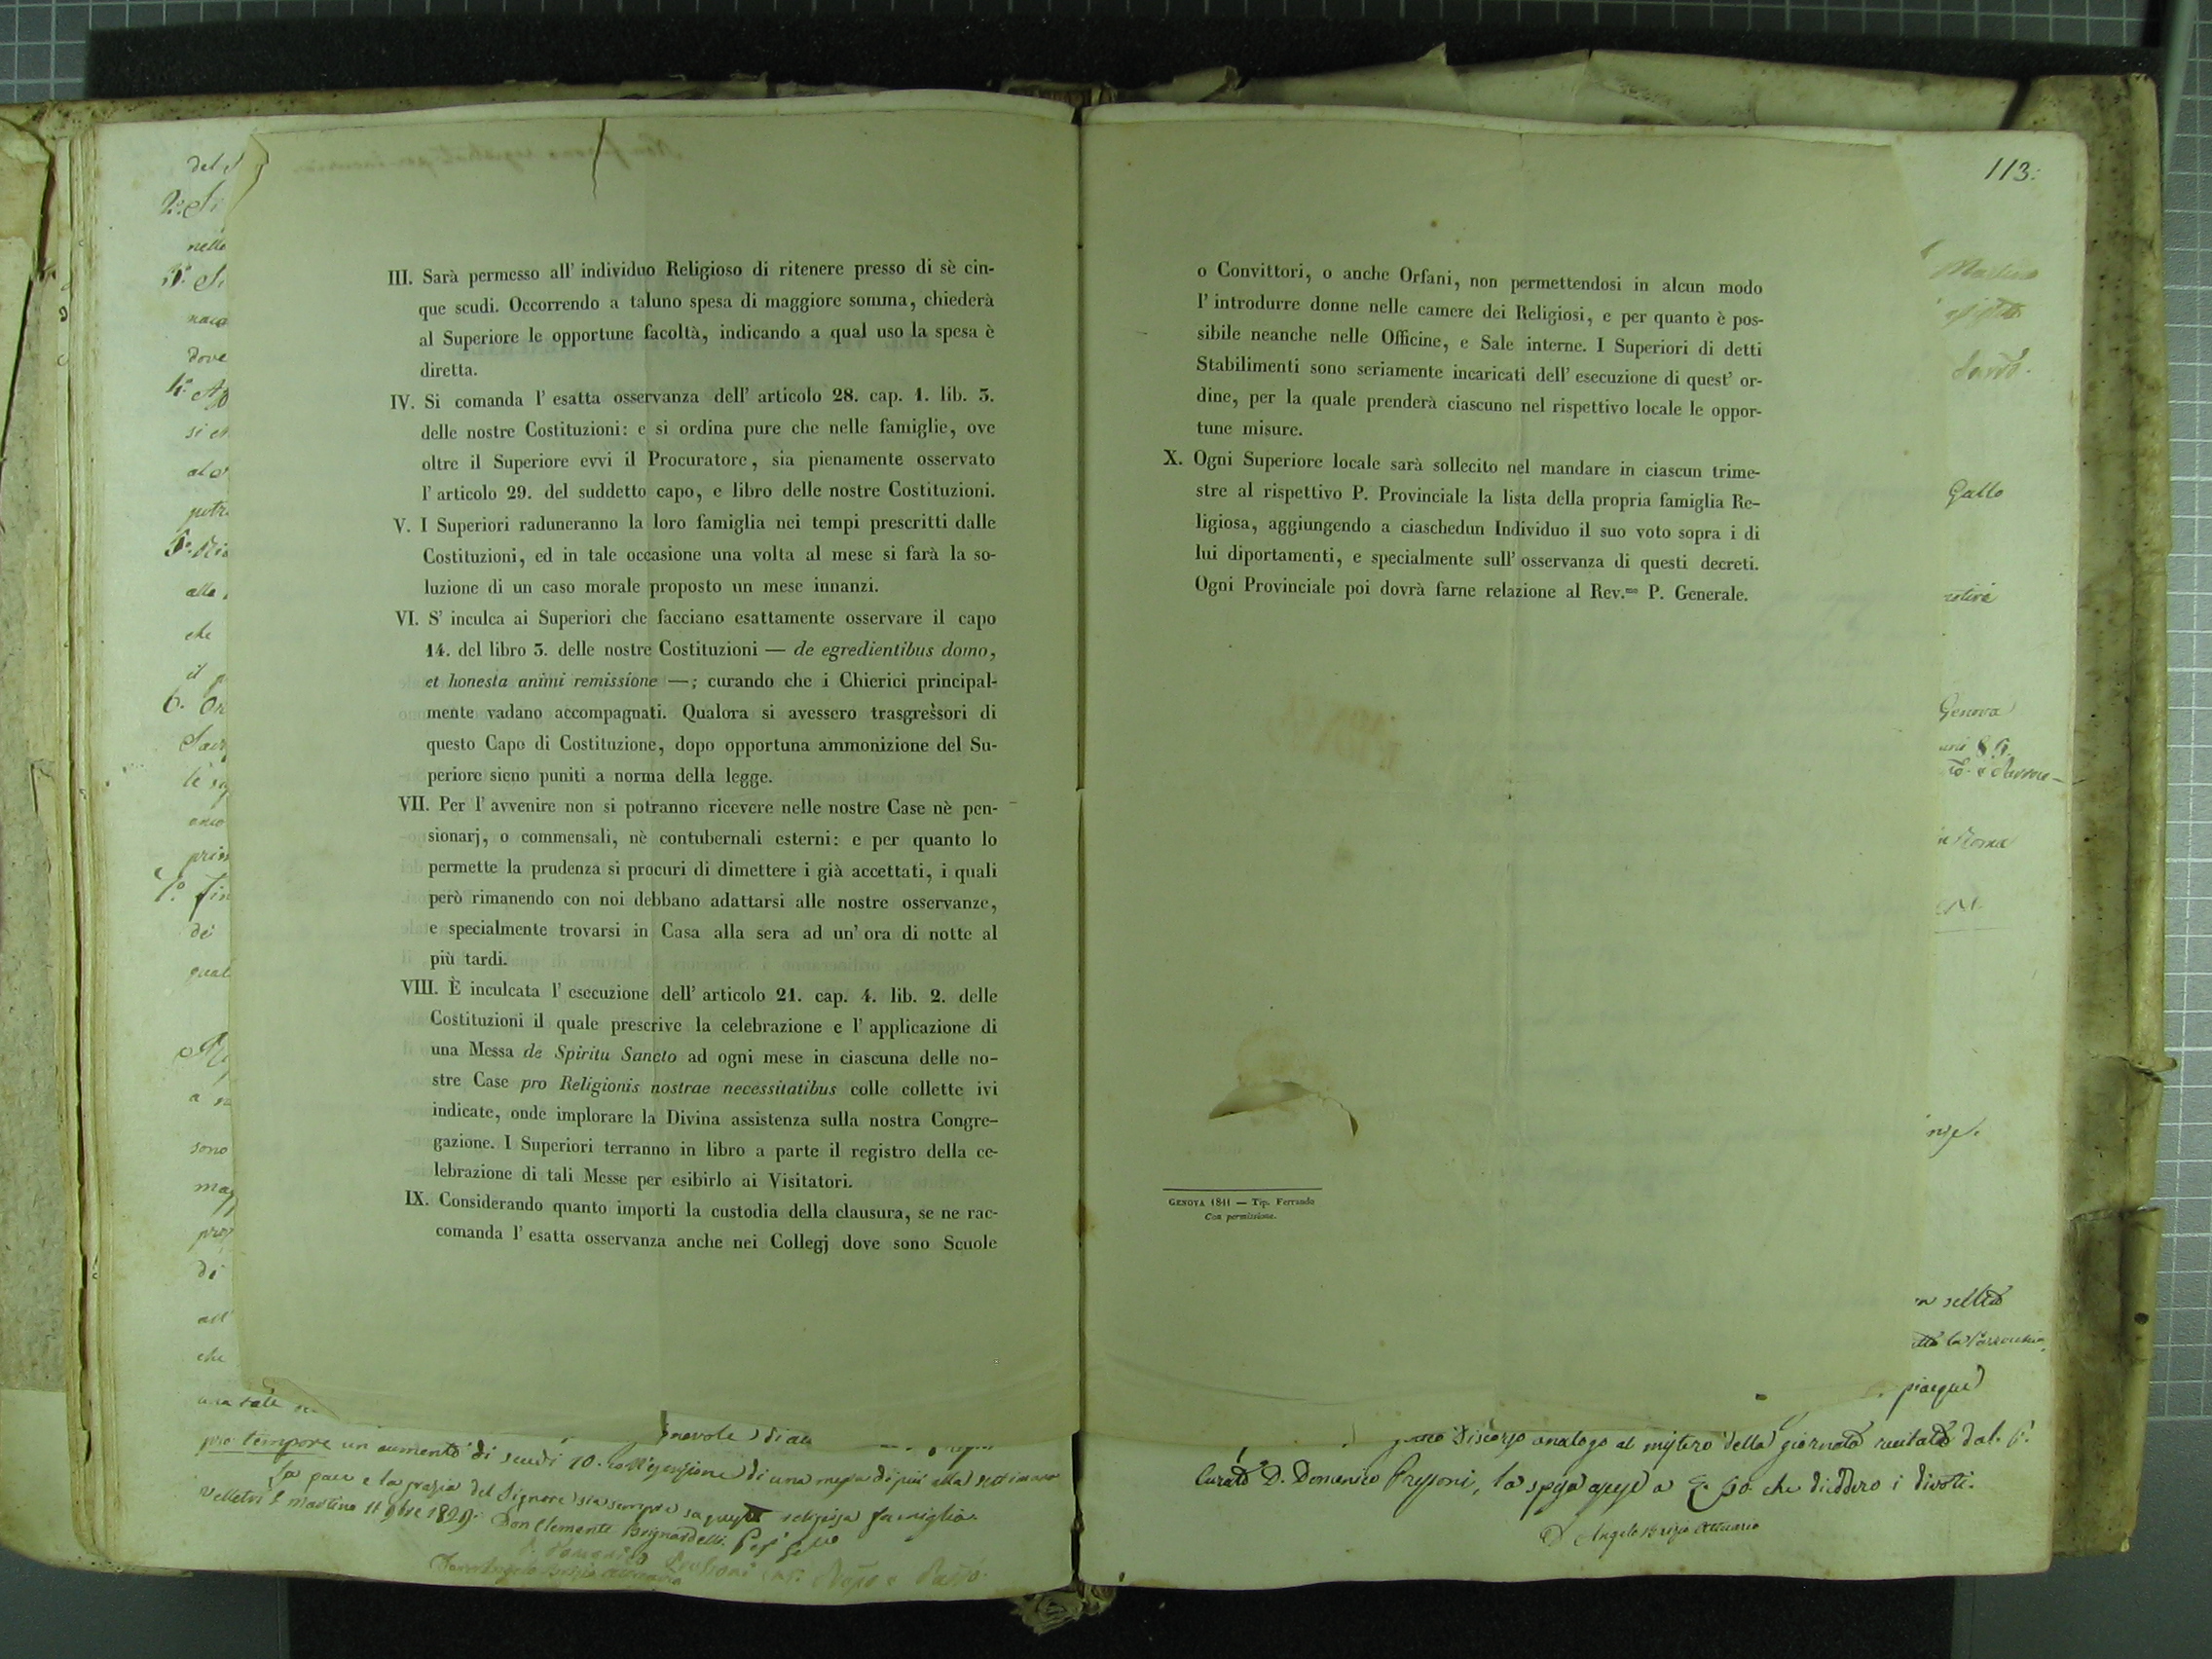 III. Sarà permesso all' individuo Religioso di ritenere presso di sè cin-
que scudi. Occorrendo a taluno spesa di maggiore somma, chiederà
al Superiore le opportune facoltà, indicando a qual uso la spesa è
diretta.
IV. Si comanda l' esatta osservanza dell' articolo 28. cap. 1. lib. 3.
delle nostre Costituzioni: e si ordina pure che nelle famiglie, ove
oltre il Superiore evvi il Procuratore, sia pienamente osservato
l' articolo 29. del suddetto capo, e libro delle nostre Costituzioni.
V. I Superiori raduneranno la loro famiglia nei tempi prescritti dalle
Costituzioni, ed in tale occasione una volta al mese si farà la so-
luzione di un caso morale proposto un mese innanzi.
VI. S' inculca ai Superiori che facciano esattamente osservare il capo
14. del libro 3. delle nostre Costituzioni — de egredientibus domo,
et honesta animi remissione —; curando che i Chierici principal-
mente vadano accompagnati. Qualora si avessero trasgressori di
questo Capo di Costituzione, dopo opportuna ammonizione del Su-
periore sieno puniti a norma della legge.
VII. Per l' avvenire non si potranno ricevere nelle nostre Case nè pen-
sionarj, o commensali, nè contubernali esterni: e per quanto lo
permette la prudenza si procuri di dimettere i già accettati, i quali
però rimanendo con noi debbano adattarsi alle nostre osservanze,
e specialmente trovarsi in Casa alla sera ad un' ora di notte al
più tardi.
VIII. È inculcata l' esecuzione dell' articolo 21. cap. 4. lib. 2. delle
Costituzioni il quale prescrive la celebrazione e l' applicazione di
una Messa de Spiritu Sancto ad ogni mese in ciascuna delle no-
stre Case pro Religionis nostrae necessitatibus colle collette ivi
indicate, onde implorare la Divina assistenza sulla nostra Congre-
gazione. I Superiori terranno in libro a parte il registro della ce-
lebrazione di tali Messe per esibirlo ai Visitatori.
IX. Considerando quanto importi la custodia della clausura, se ne rac-
comanda l' esatta osservanza anche nei Collegj dove sono Scuole
pro tempore un aumento di scudi 10. coll'esenzione di una messa di più alla settimana
La pace e la grazia del Signore sia sempre su questa religiosa famiglia.
Velletri S. Martino 11 9bre 1829. Don Clemente Brignardelli
113.
o Convittori, o anche Orfani, non permettendosi in alcun modo
l' introdurre donne nelle camere dei Religiosi, e per quanto è pos-
sibile neanche nelle Officine, e Sale interne. I Superiori di detti
Stabilimenti sono seriamente incaricati dell' esecuzione di quest' or-
dine, per la quale prenderà ciascuno nel rispettivo locale le oppor-
tune misure.
X. Ogni Superiore locale sarà sollecito nel mandare in ciascun trime-
stre al rispettivo P. Provinciale la lista della propria famiglia Re-
ligiosa, aggiungendo a ciaschedun Individuo il suo voto sopra i di
lui diportamenti, e specialmente sull' osservanza di questi decreti.
Ogni Provinciale poi dovrà farne relazione al Rev.mo P. Generale.
Gallo
Genova
in Roma
GENOVA 1841 — Tip. Ferrando
Con permissione.
piacque
discorso analogo al mistero della giornata recitato dal P.
Curato D. Domenico Pressoni, la spesa ascese a che diedero i divoti.
D. Angelo Brizio Attuario